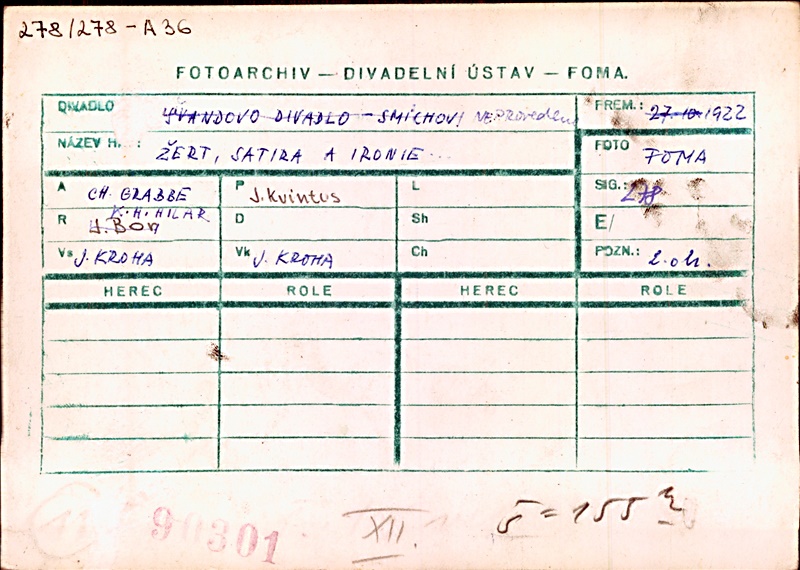 278/278 - A 36
FOTOARCHIV — DIVADELNÍ ÚSTAV — FOMA.
DIVADLO ŠVANDOVO DIVADLO - SMÍCHOV / NEPROVEDENO PREM.: 27. 10. 1922
NÁZEV H. : ŽERT, SATIRA A IRONIE... FOTO FOMA
A CH. GRABBE P J. Kvintus L SIG.: 278
K. H. HILAR
R J. BOR D Sh E/
Vs J. KROHA Vk J. KROHA Ch POZN.: 2. ok.
HEREC ROLE HEREC ROLE
90301 XII. š = 155